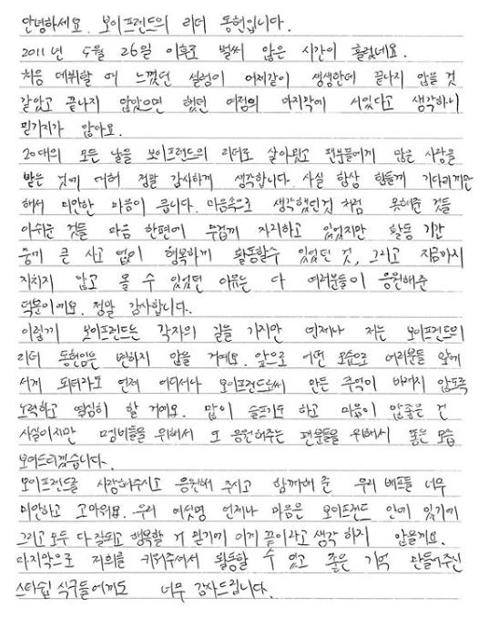 안녕하세요. 보이프렌드의 리더 동현입니다.
2011년 5월 26일 이후로 벌써 많은 시간이 흘렀네요.
처음 데뷔할 때 느꼈던 설렘이 어제같이 생생한데 끝나지 않을 것
같았고 끝나지 않았으면 했던 여정의 마지막에 서있다고 생각하니
믿기지가 않아요.
20대의 모든 날을 보이프렌드의 리더로 살아왔고 팬분들에게 많은 사랑을
받은 것에 대해 정말 감사하게 생각합니다. 사실 항상 힘들게 기다리게만
해서 미안한 마음이 큽니다. 마음속으로 생각했던것 처럼 못해준 것들
아쉬운 것들 마음 한편에 무겁게 자리하고 있었지만 활동 기간
동안 큰 사고 없이 행복하게 활동할수 있었던 것, 그리고 지금까지
지치지 않고 올 수 있었던 이유는 다 여러분들이 응원해준
덕분이에요. 정말 감사합니다.
이렇게 보이프렌드는 각자의 길을 가지만 언제나 저는 보이프렌드의
리더 동현임은 변하지 않을 거예요. 앞으로 어떤 모습으로 여러분들 앞에
서게 되더라도 언제 어디서나 보이프렌드로써 만든 추억이 바래지 않도록
노력하고 열심히 할 거예요. 많이 슬프기도 하고 마음이 안좋은 건
사실이지만 멤버들을 위해서 또 응원해주는 팬분들을 위해서 좋은 모습
보여드리겠습니다.
보이프렌드를 사랑해주시고 응원해 주시고 함께해 준 우리 베프들 너무
미안하고 고마워요. 우리 여섯명 언제나 마음은 보이프렌드 안에 있기에
그리고 모두 다 잘되고 행복할 거 믿기에 이게 끝이라고 생각 하지 않을게요.
마지막으로 저희를 키워주셔서 활동할 수 있고 좋은 기억 만들어주신
스타쉽 식구들에게도 너무 감사드립니다.